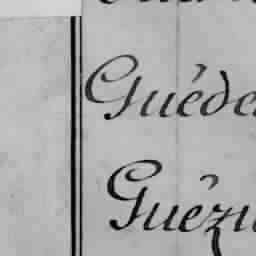 Guéde
Guézu